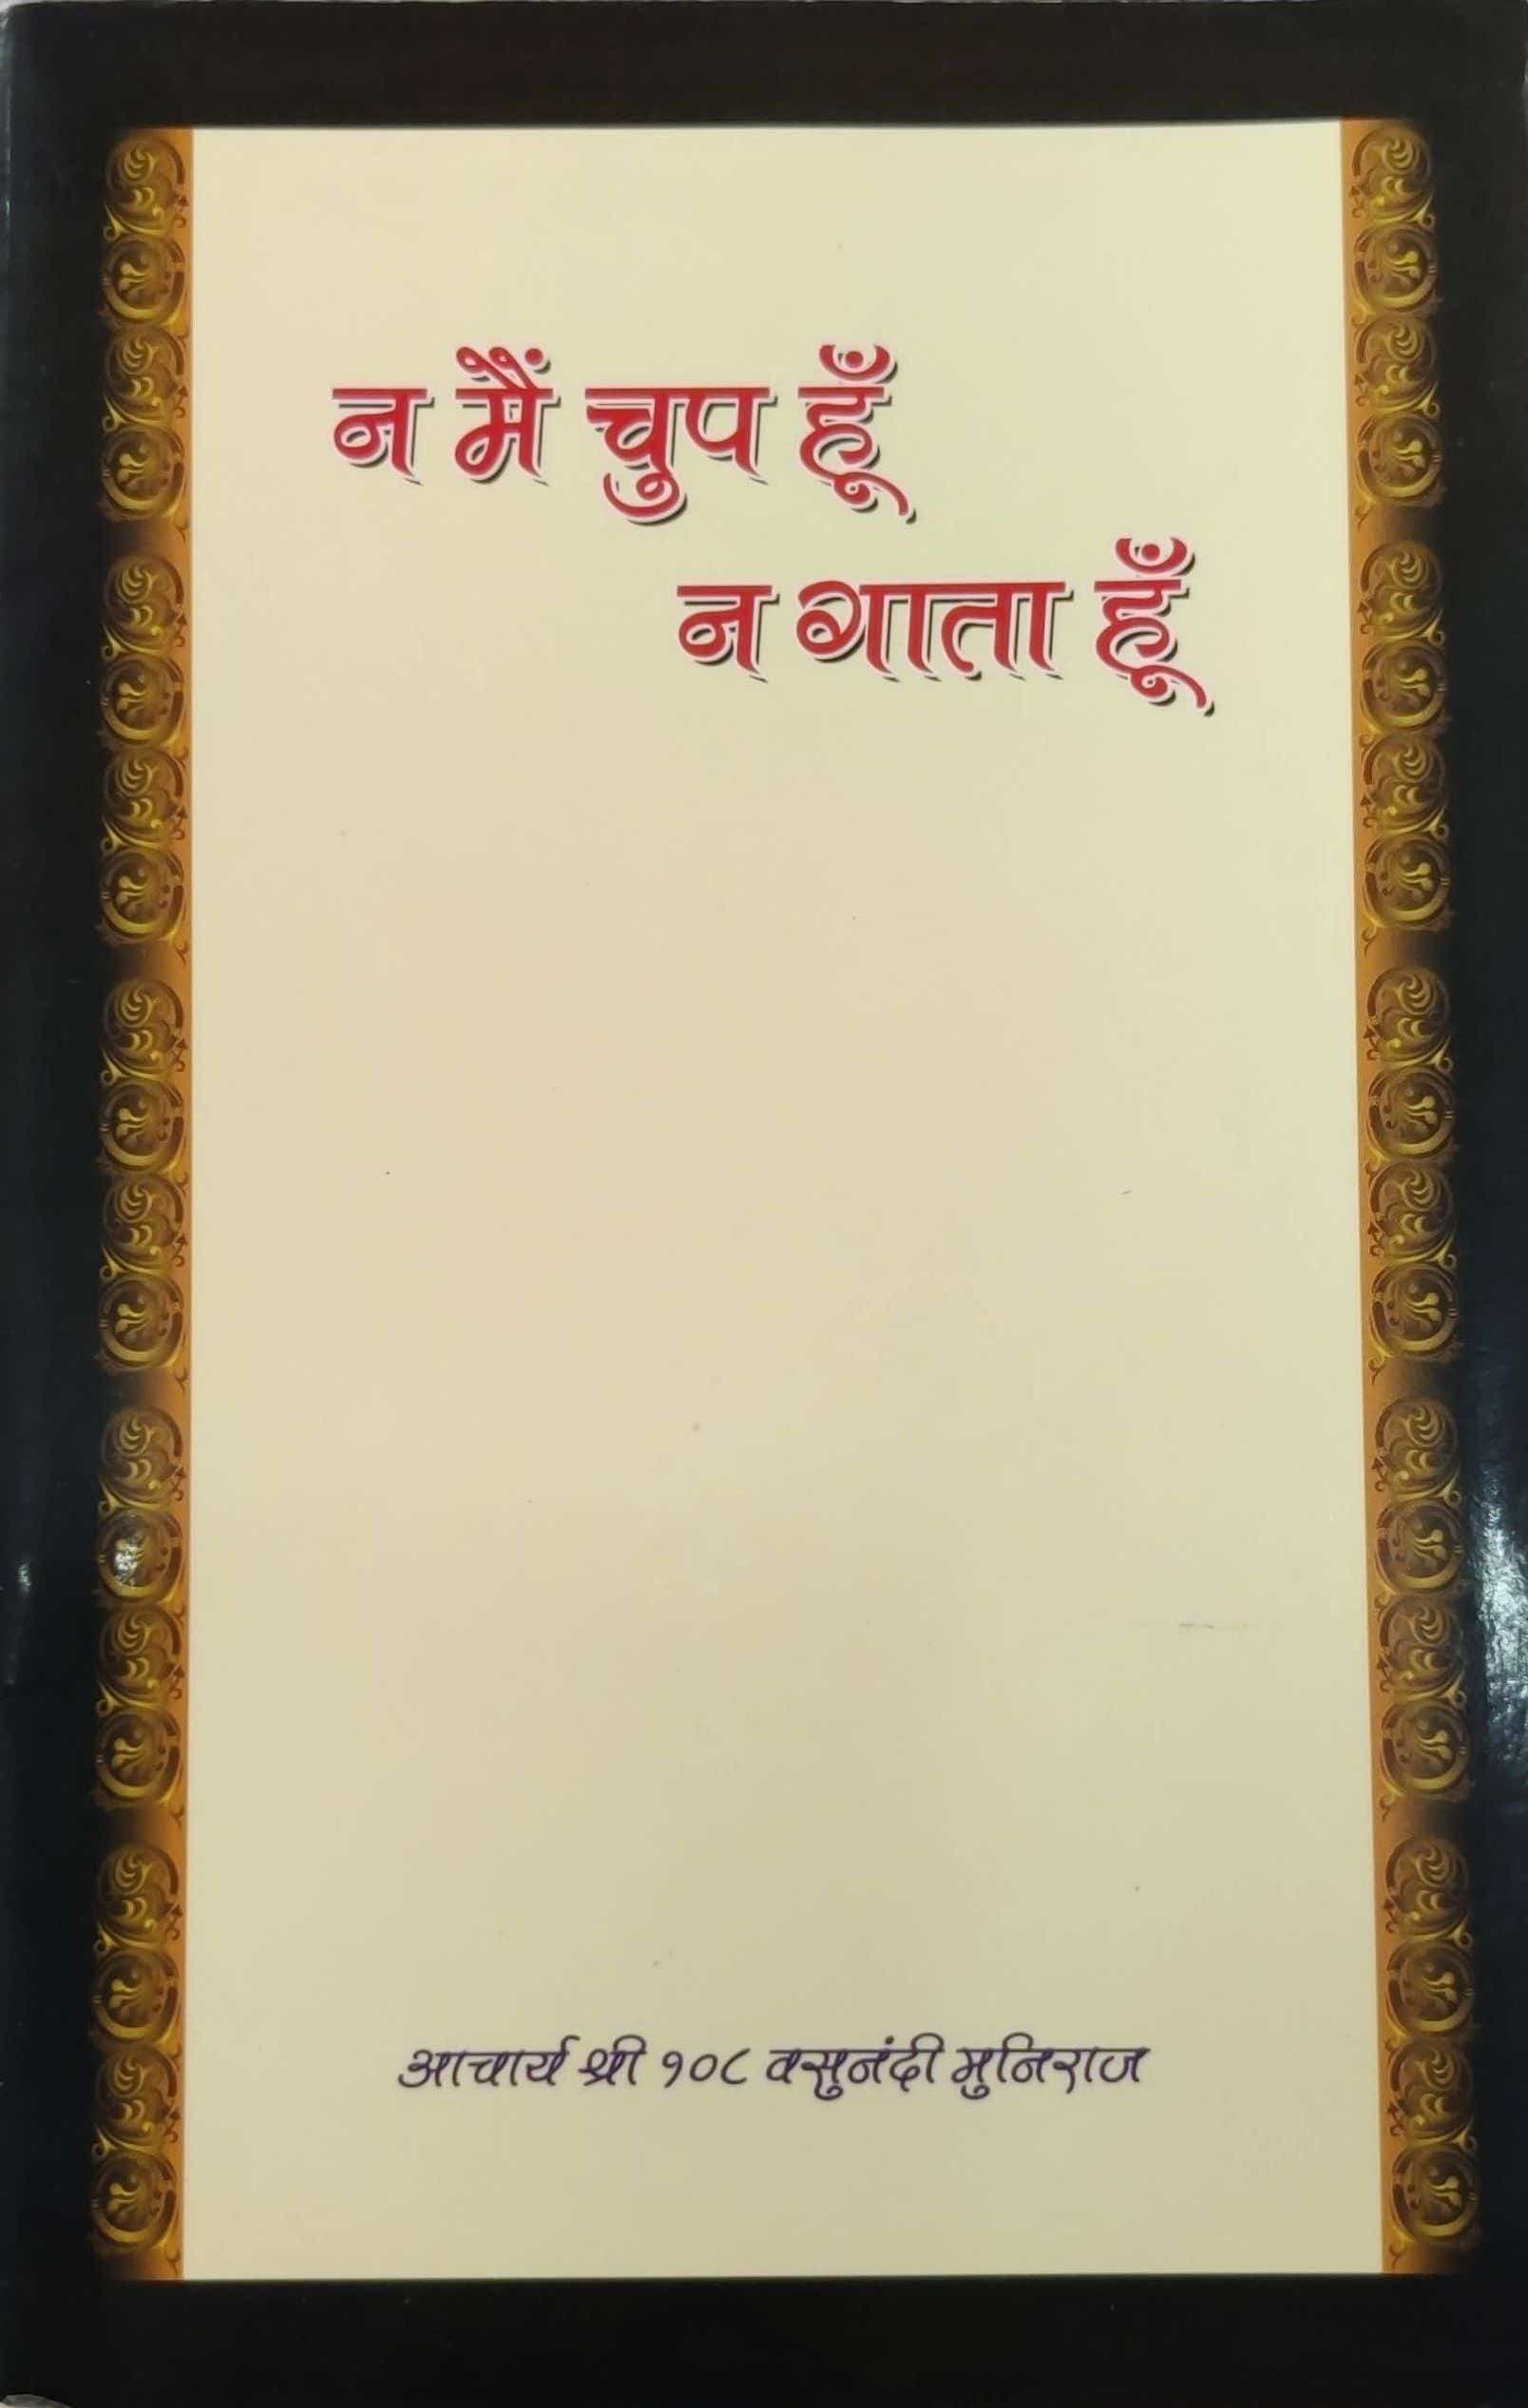 न मैं चुप हूँ
न गाता हूँ
आचार्य श्री १०८ वसुनंदी मुनिराज